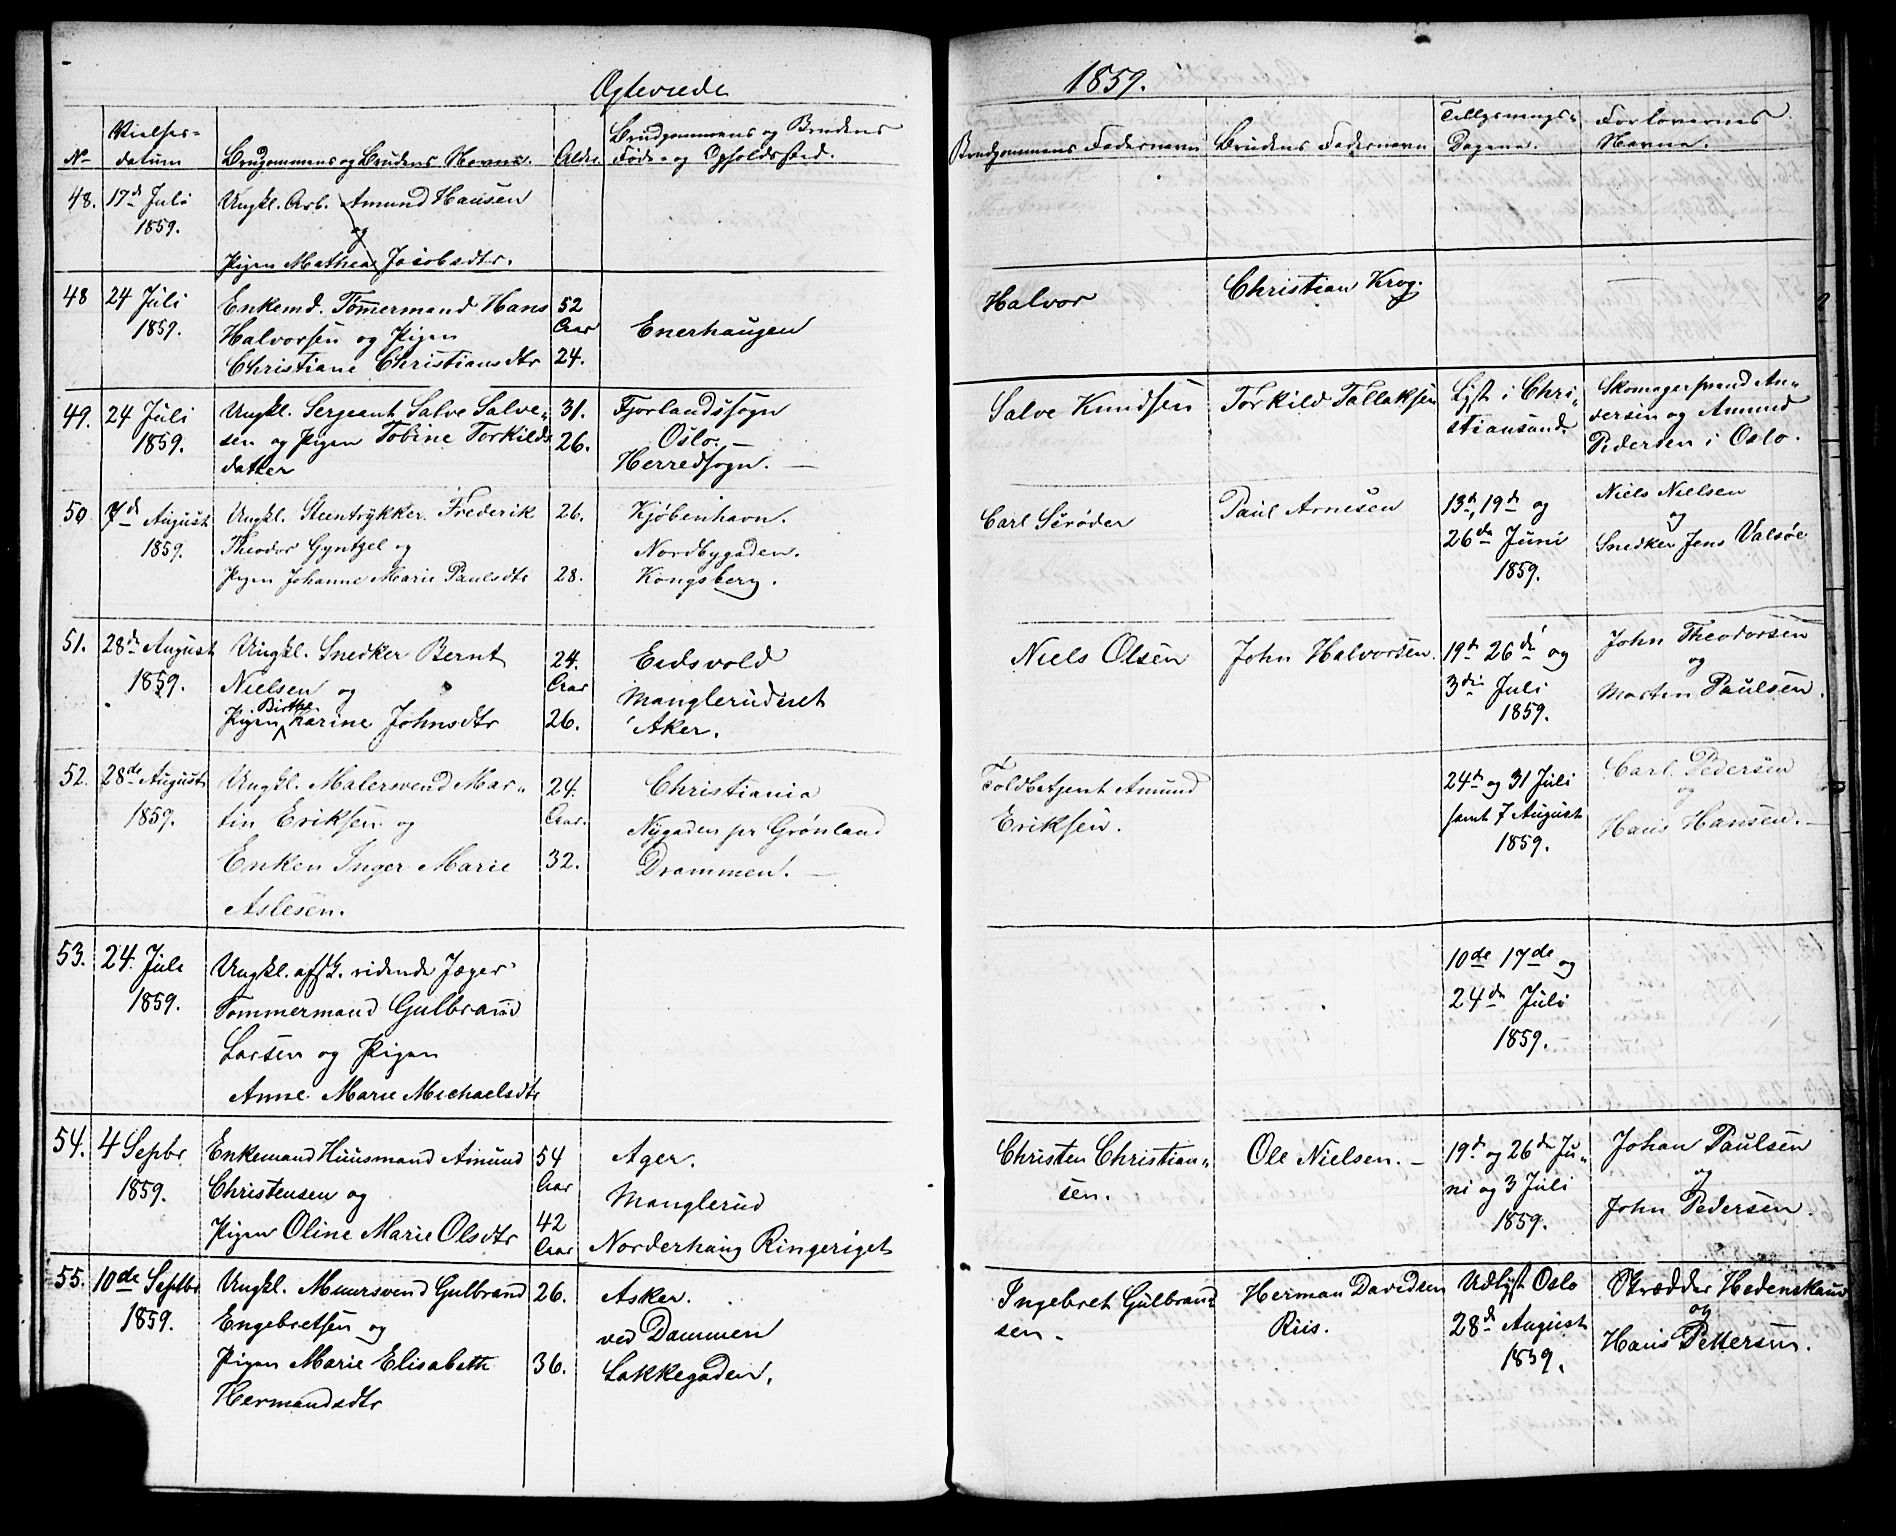 Egteviede
1859.
No
Vielses-
datum
Brudgommens og Brudens Navne.
Alder
Brudgommens og Brudens
Føde- og Opholdssted.
Brudgommens Fadernavn
Brudens Fadernavn
Tillysnings-
Dagene.
Forlovernes
Navne.
48. 17de Juli Ungkl. Arb. Amund Hansen
1859. og
Pigen Mathea Jacobsdtr.
48 24 Juli Enkemd. Tømmermand Hans 52 Halvor Christian Krog.
1859. Halvorsen og Pigen Aar Enerhaugen
Christiane Christiansdtr 24.
49. 24 Juli Ungkl. Sergeant Salve Salve- 31. Fjorlandssogn Salve Knudsen Torkild Tallaksen Lyst i Chri- Skomagersvend An-
1859. sen og Pigen Tobine Torkilds 26. Oslo. stiansand. dersen og Amund
datter Herredsogn. Pedersen i Oslo.
50 7de August Ungkl. Steentrykker Frederik 26. Kjøbenhavn. Carl Scrøder Paul Arnesen 13de, 19de og Niels Nielsen
1859. Theodor Gyntzel og Nordbygaden. 26de Juni og
Pigen Johanne Marie Paulsdtr 28. Kongsberg. 1859. Snedker Jens Valsøe
51. 28de August Ungkl. Snedker Bernt 24. Eidsvold Niels Olsen John Halvorsen. 19de 26de og John Theodorsen
1859. Nielsen og Aar Mangleruderet 3die Juli og
Pigen Birthe Karine Johnsdtr 26. Aker. 1859. Martin Paulsen.
52. 28de August Ungkl. Malersvend Mar- 24. Christiania Toldbetjent Amund 24de og 31 Juli Carl Pedersen
1859. tin Eriksen og Aar. Nygaden pr Grønland Eriksen. samt 7 August og
Enken Inger Marie 32. Drammen. 1859. Hans Hansen.
Aslesen.
53. 24. Juli Ungkl. affsk. ridende Jæger 10de 17de og
1859. Tømmermand Gulbrand 24de Juli
Larsen og Pigen 1859.
Anne Marie Michaelsdtr
54. 4 Sepbr Enkemand Huusmand Amund 54 Ager. Christen Christian- Ole Nielsen. 19de og 26de Ju- Johan Paulsen
1859. Christensen og Aar Manglerud sen. ni og 3 Juli og
Pigen Oline Marie Olsdtr 42 Aar Norderhaug Ringeriget 1859. John Pedersen.
55. 10de Septbr Ungkl. Muursvend Gulbrand 26. Asker. Ingebret Gulbrand- Herman Davidsen Udlyst Oslo Skrædder Hedenskaug
1859. Engebretsen og ved Dammen sen. Riis. 28de August og
Pigen Marie Elisabeth 36. Lakkegaden. 1859. Hans Pettersen.
Hermandsdtr